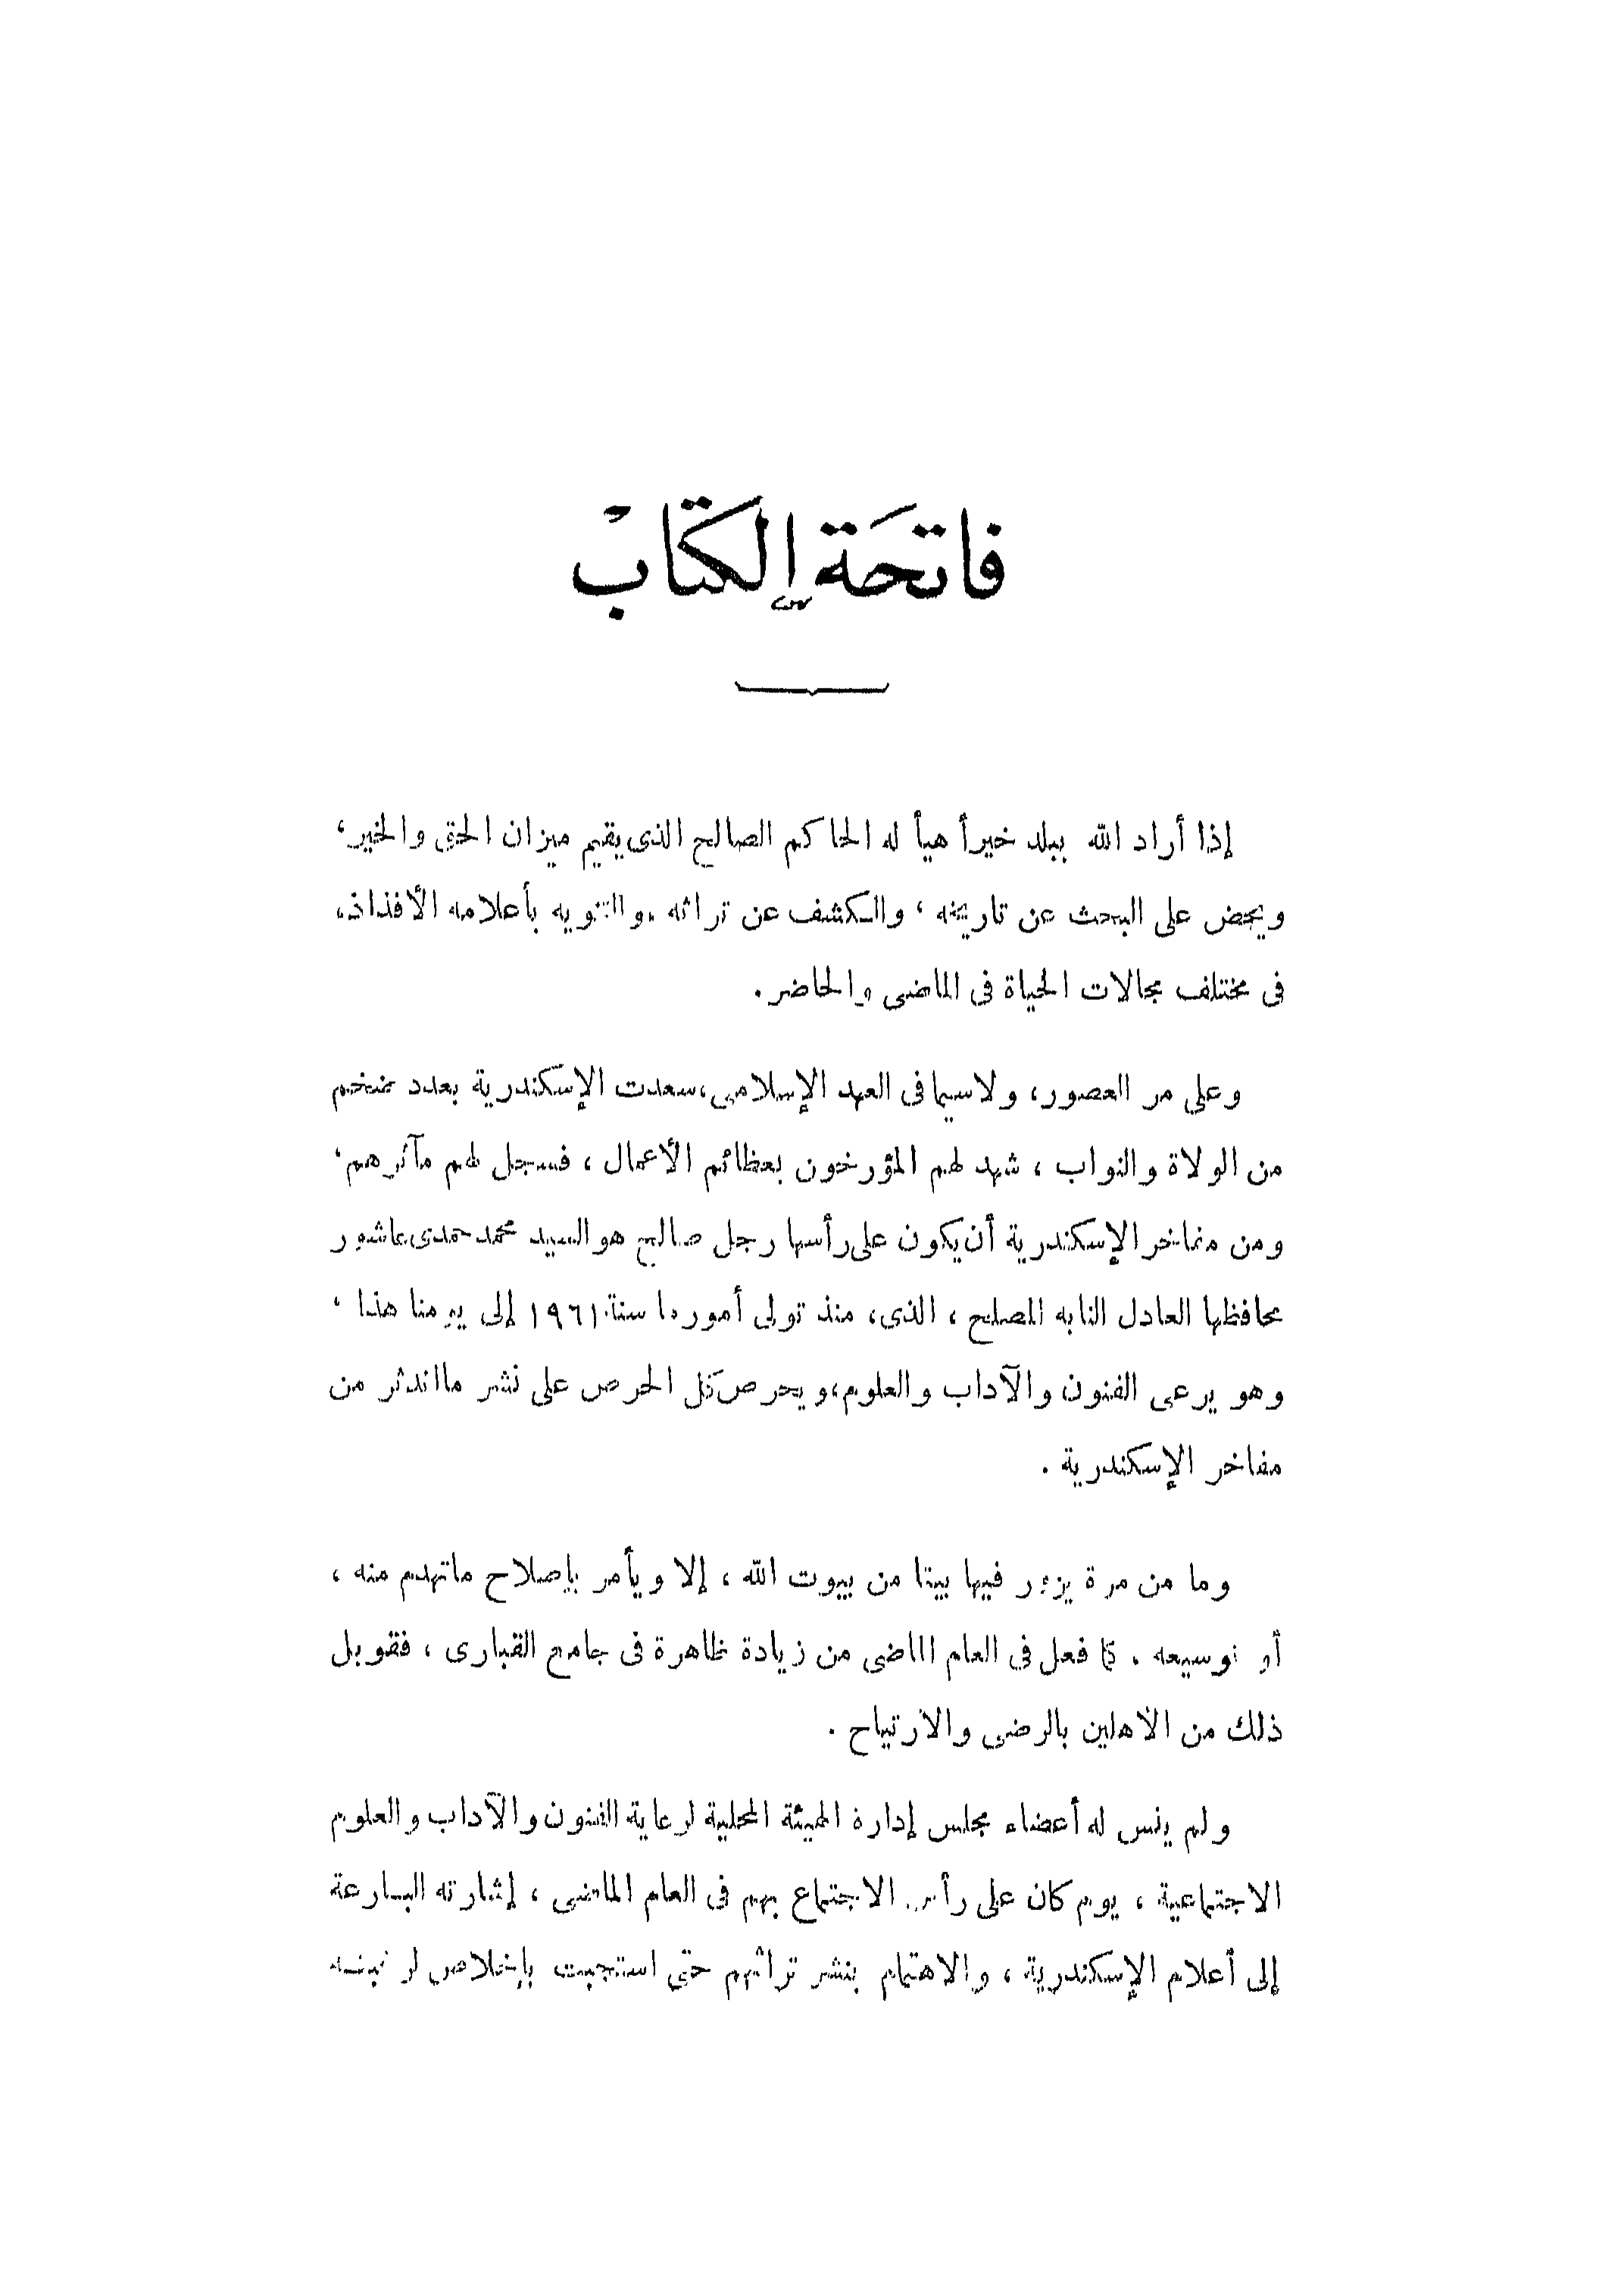 فاتحَة الكتابْ
إذا أراد الله ببلد خيراً هيأ له الحاكم الصالح الذى يقيم ميزان الحق والخير،
ويحض على البحث عن تاريخه ، والكشف عن تراثه ، والتنويه بأعلامه الأفذاذ،
فى مختلف مجالات الحياة فى الماضى والحاضر .
وعلى مر العصور، ولاسيما فى العهد الإسلامى، سعدت الإسكندرية بعدد ضخم
من الولاة والنواب ، شهد لهم المؤرخون بعظائم الأعمال ، فسجل لهم مآثرهم،
ومن مفاخر الإسكندرية أن يكون على رأسها رجل صالح هو السيد محمد حمدى عاشور
محافظها العادل النابه المصلح ، الذى، منذ تولى أمورها سنة ١٩٦١ إلى يومنا هذا ،
وهو يرعى الفنون والآداب والعلوم، ويحرص كل الحرص على نشر ما اندثر من
مفاخر الإسكندرية .
وما من مرة يزور فيها بيتا من بيوت الله ، إلا ويأمر بإصلاح ماتهدم منه ،
أو توسيعه . كما فعل فى العام الماضى من زيادة ظاهرة فى جامع القبارى ، فقوبل
ذلك من الأهلين بالرضى والارتياح .
ولم ينس له أعضاء مجلس إدارة الهيئة المحلية لرعاية الفنون والآداب والعلوم
الاجتماعية ، يوم كان على رأس الاجتماع بهم فى العام الماضى ، إشارته البارعة
إلى أعلام الإسكندرية ، والاهتمام بنشر تراثهم حتى استجبت بإخلاص لرغبته